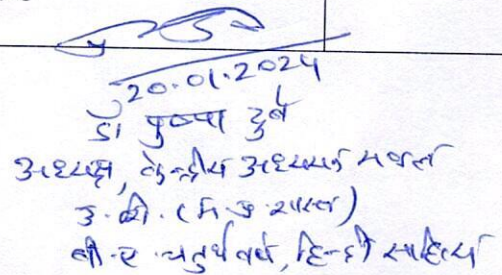 20.01.2024
डॉ पुष्पा दुबे
अध्यक्ष, केन्द्रीय अध्ययन मण्डल
उ. शि. (म.प्र. शासन)
बी.ए. चतुर्थ वर्ष, हिन्दी साहित्य